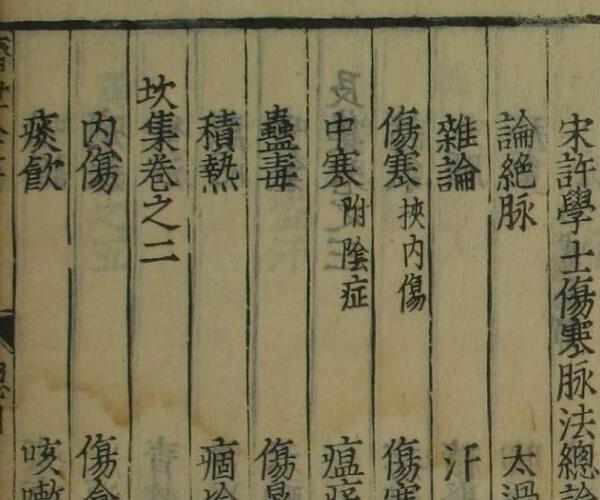 宋許學士傷寒脉法總
論絕脉 太過
雜論 汗
傷寒 挾内傷 傷寒
中寒 附陰症 瘟疫
蠱毒 傷
積熱 痼
坎集卷之二
内傷 傷
痰飲 咳嗽